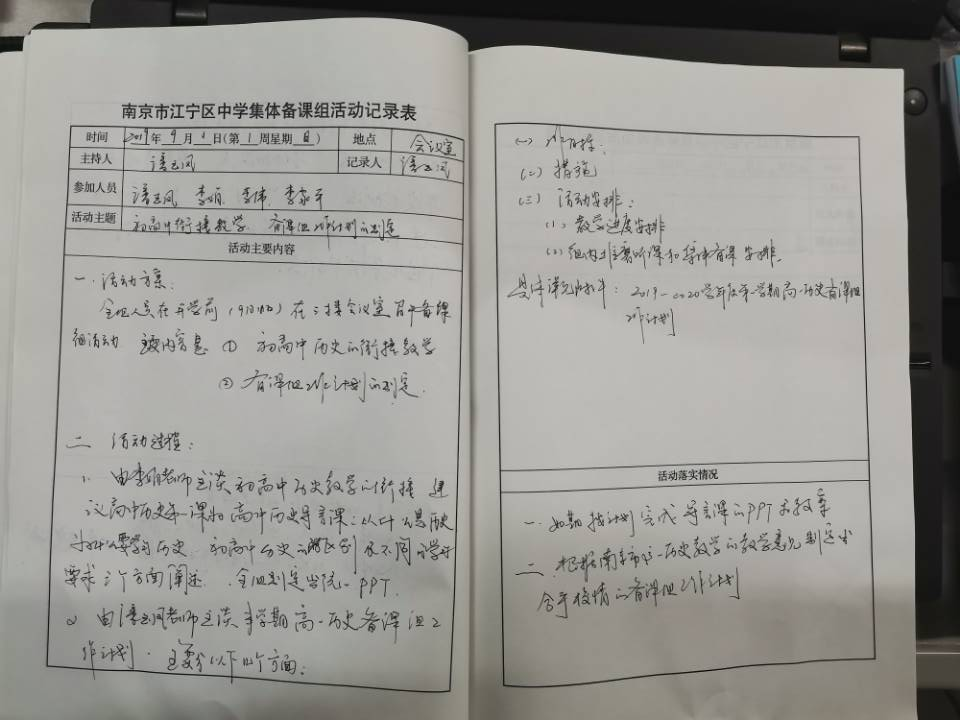 南京市江宁区中学集体备课组活动记录表
时间 2019年9月1日(第1周星期日) 地点 会议室
主持人 凤 记录人 凤
参加人员 凤 李娟 李伟 李家平
活动主题 初高中衔接教学、备课组工作计划的制定
活动主要内容
一. 活动方案:
全组人员在开学前(9月1日)在三楼会议室召开备课
组活动 主要内容是 ① 初高中历史的衔接教学
② 备课组工作计划的制定.
二 活动过程:
1. 由李娟老师主谈初高中历史教学的衔接 建
议高中历史第一课为高中历史导言课:从什么是历史
为什么要学习历史 初高中历史的区别及不同的学习
要求三个方面阐述. 全组制定出统一PPT.
2 由凤老师主谈本学期高一历史备课组工
作计划. 主要分以下几个方面:
(一) 工作目标:
(二) 措施
(三) 活动安排:
(1) 教学进度安排
(2) 组内听课和集体备课安排.
具体详见附件: 2019-2020学年度第一学期高一历史备课组
工作计划
活动落实情况
一. 如期按计划完成导言课的PPT和教案
二. 根据南京市高一历史教学的教学情况制定出
合乎校情的备课组工作计划